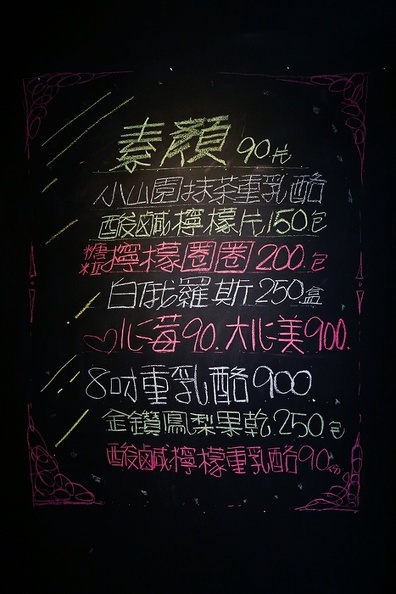 素顏 90片
小山園抹茶重乳酪
酸鹹檸檬片150.包
糖粒檸檬圈圈 200.包
白俄羅斯250盒
心莓90.大心美900.
8吋重乳酪900.
金鑽鳳梨果乾.250包
酸鹹檸檬重乳酪90.